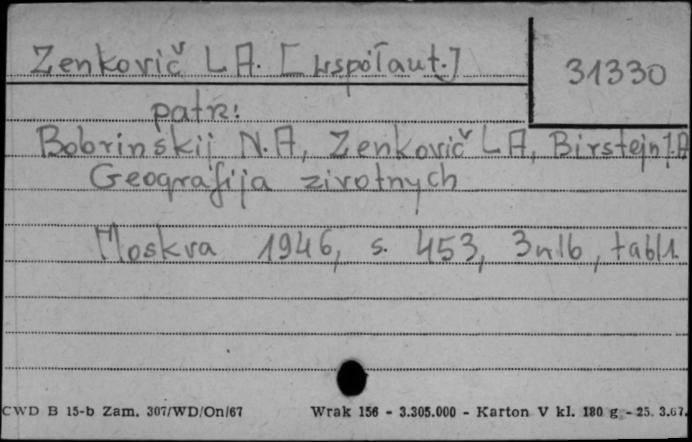 Zenkovič L A. [współaut.]
31330
patrz:
Bobrinskij N. A, Zenkovič L A, Birstejn J. A
Geografija zivotnych
Moskva 1946, s. 453, 3 nlb, tabl 1
CWD B 15-b Zam. 307/WD/On/67 Wrak 156 - 3.305.000 - Karton V kl. 180 g - 25. 3.67.